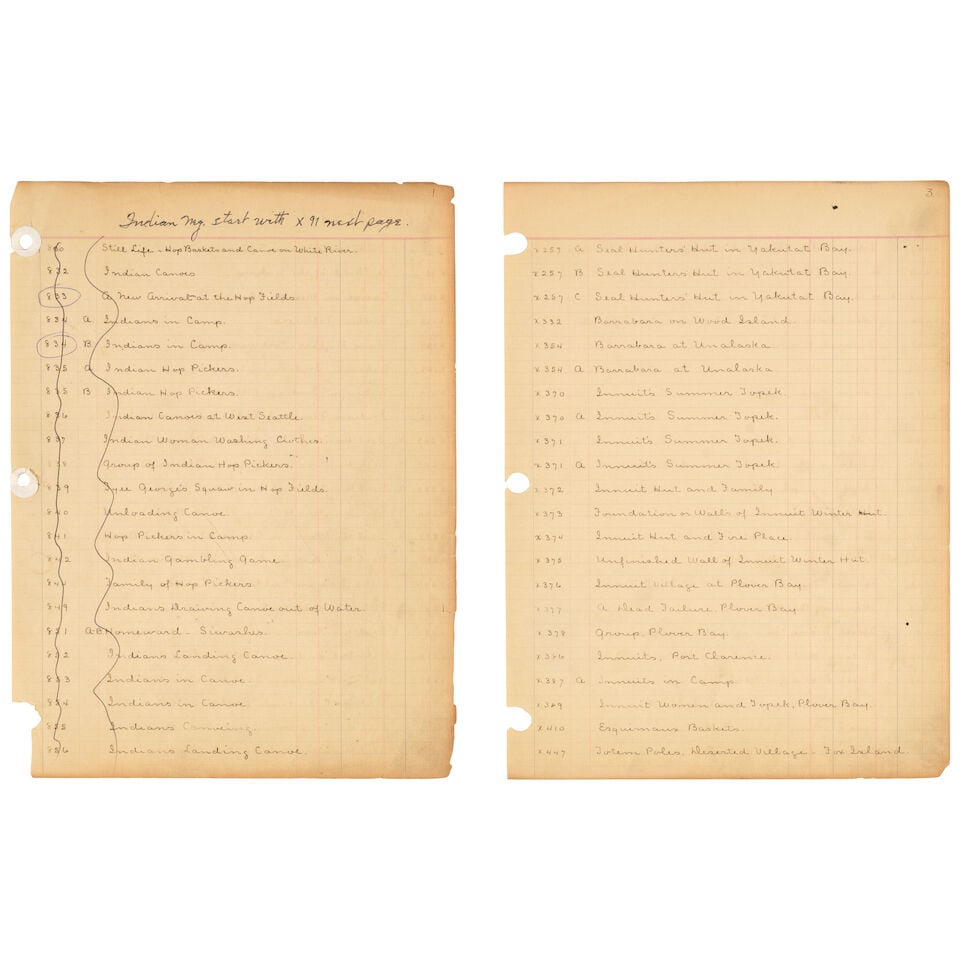 1
Indian Mg. start with x 91 next page.
830 Still Life - Hop Baskets and Canoe on White River.
832 Indian Canoes
833 A New Arrival at the Hop Fields.
834 A Indians in Camp.
834 B Indians in Camp.
835 A Indian Hop Pickers.
835 B Indian Hop Pickers.
836 Indian Canoes at West Seattle.
837 Indian Woman Washing Clothes.
838 Group of Indian Hop Pickers.
839 Tyee George's Squaw in Hop Fields.
840 Unloading Canoe.
841 Hop Pickers in Camp.
842 Indian Gambling Game.
Family of Hop Pickers
849 Indians Drawing Canoe out of Water.
851 A-B Homeward - Siwashes.
852 Indians Landing Canoe.
853 Indians in Canoe.
854 Indians in Canoe.
855 Indians Canoeing.
856 Indians Landing Canoe.
3
x257 A Seal Hunters' Hut in Yakutat Bay.
x257 B Seal Hunters' Hut in Yakutat Bay.
x257 C Seal Hunters' Hut in Yakutat Bay.
x332 Barrabara on Wood Island.
x354 Barrabara at Unalaska.
x354 A Barrabara at Unalaska
x370 Innuit's Summer Topek.
x370 A Innuit's Summer Topek.
x371 Innuit's Summer Topek.
x371 A Innuit's Summer Topek
x372 Innuit Hut and Family
x373 Foundation or Walls of Innuit Winter Hut.
x374 Innuit Hut and Fire Place.
x375 Unfinished Wall of Innuit Winter Hut.
x376 Innuit Village at Plover Bay.
x377 A Dead Failure, Plover Bay.
x378 Group, Plover Bay.
x386 Innuits, Port Clarence.
x387 A Innuits in Camp.
x389 Innuit Women and Topek, Plover Bay.
x410 Esquimaux Baskets.
x447 Totem Poles, Deserted Village - Fox Island.